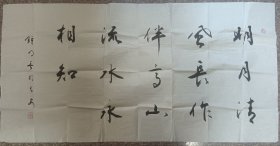 明月清
风长作
伴高山
流水永
相知